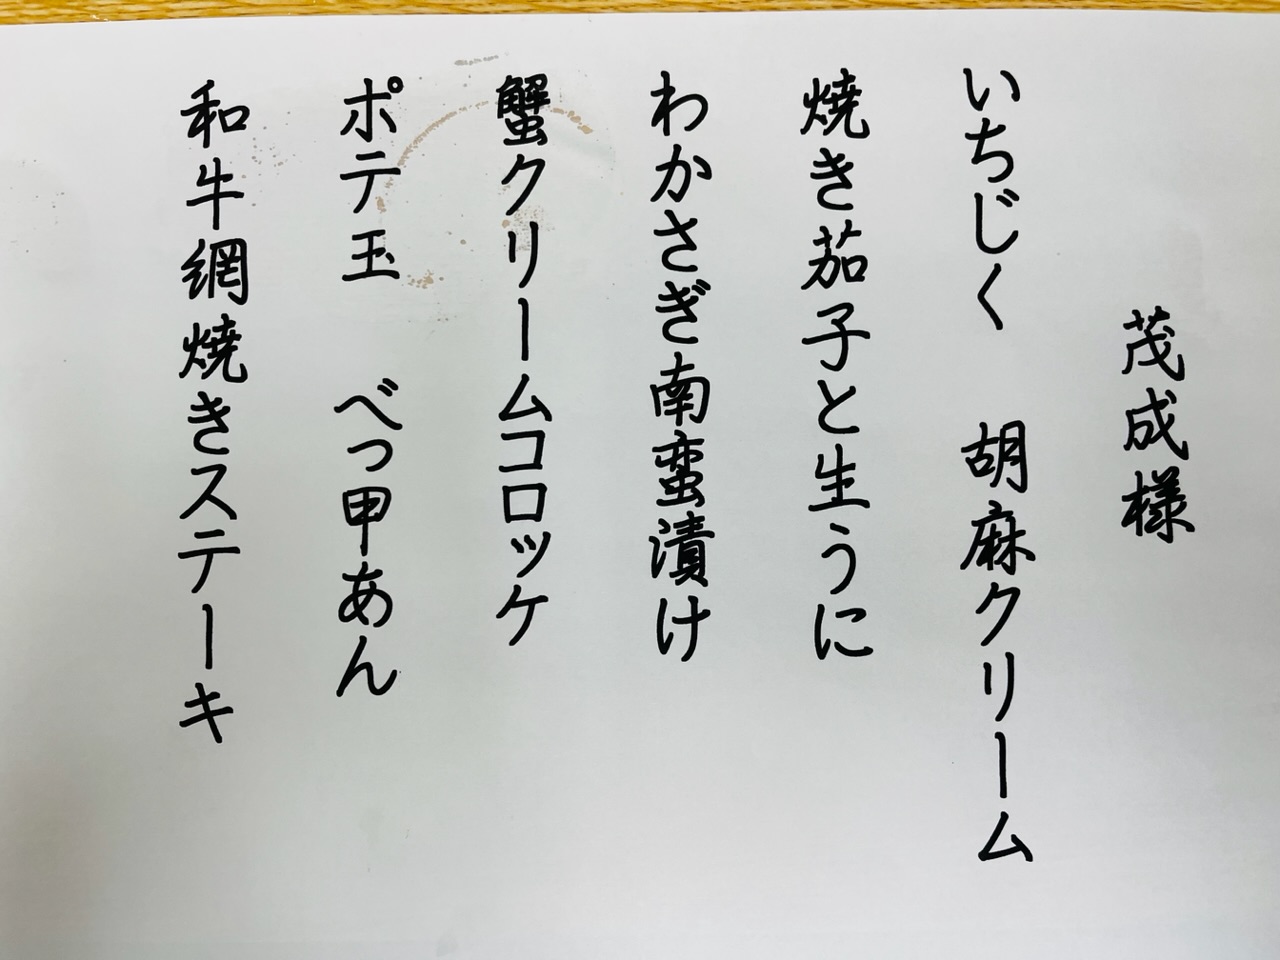 茂成様
いちじく　胡麻クリーム
焼き茄子と生うに
わかさぎ南蛮漬け
蟹クリームコロッケ
ポテ玉　べっ甲あん
和牛網焼きステーキ